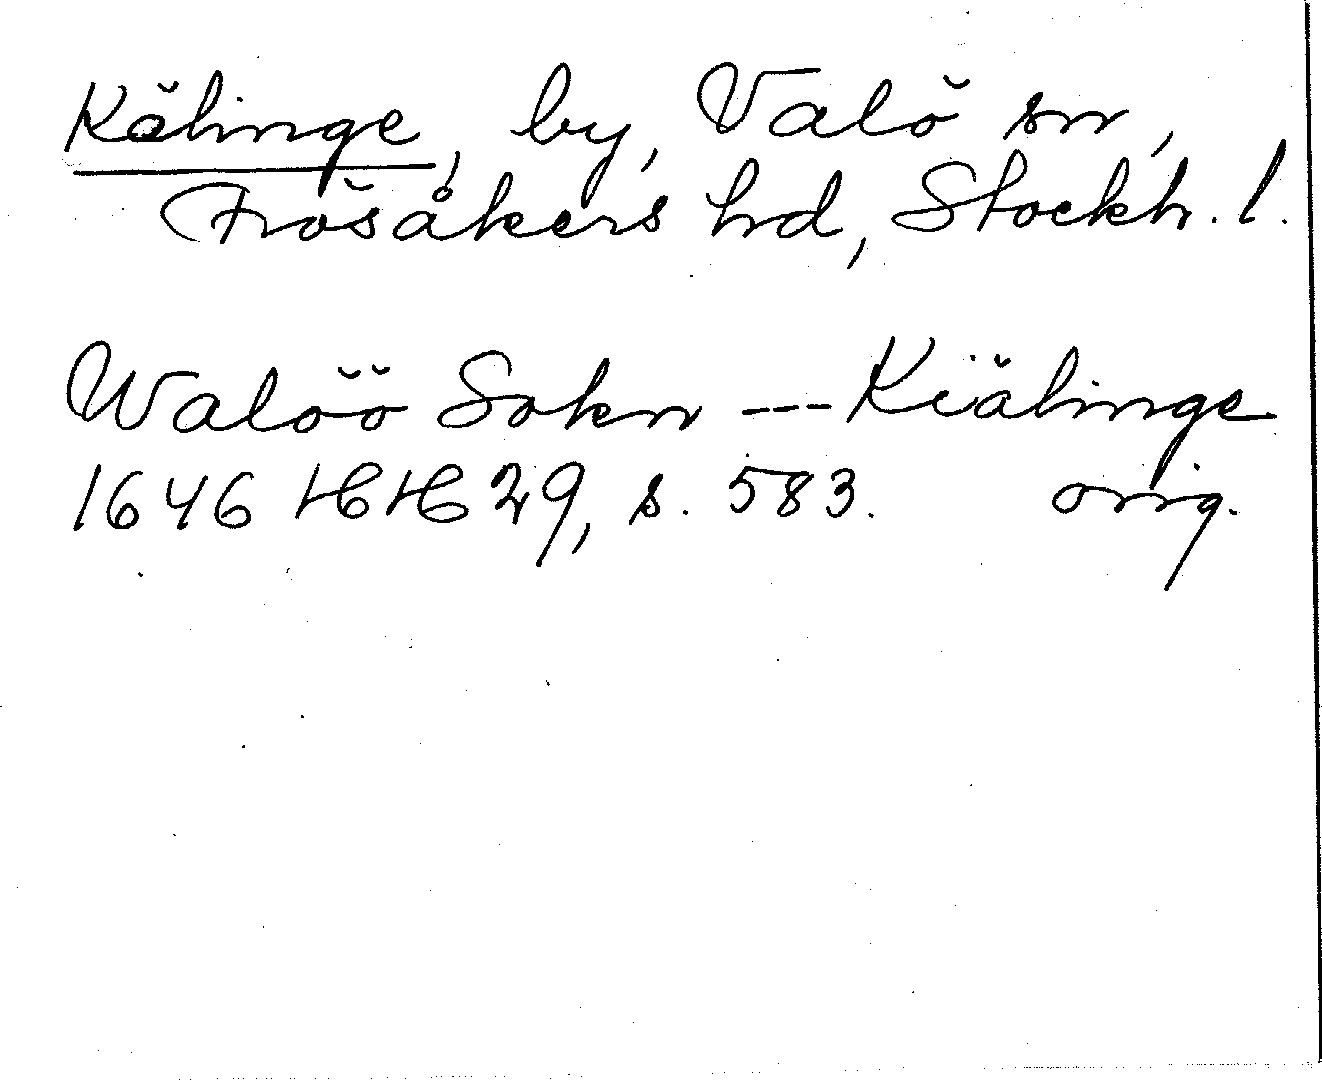 Källinge, by, Valö sn,
Frösåkers hrd, Stockh. l.
Walöö Sokn --- Kiälinge
1646 HH 29, s. 583. orig.